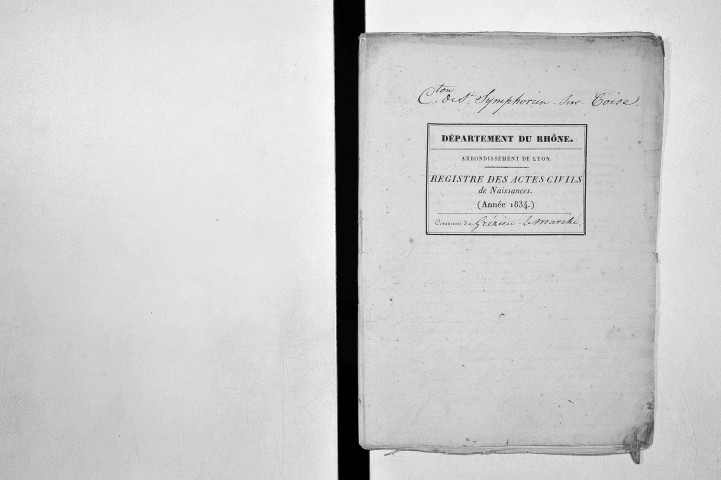 C.ton de St. Symphorien-sur-Coise.
DÉPARTEMENT DU RHÔNE.
ARRONDISSEMENT DE LYON.
REGISTRE DES ACTES CIVILS
de Naissances.
(Année 1834.)
Commune de Grézieu-le-marché.